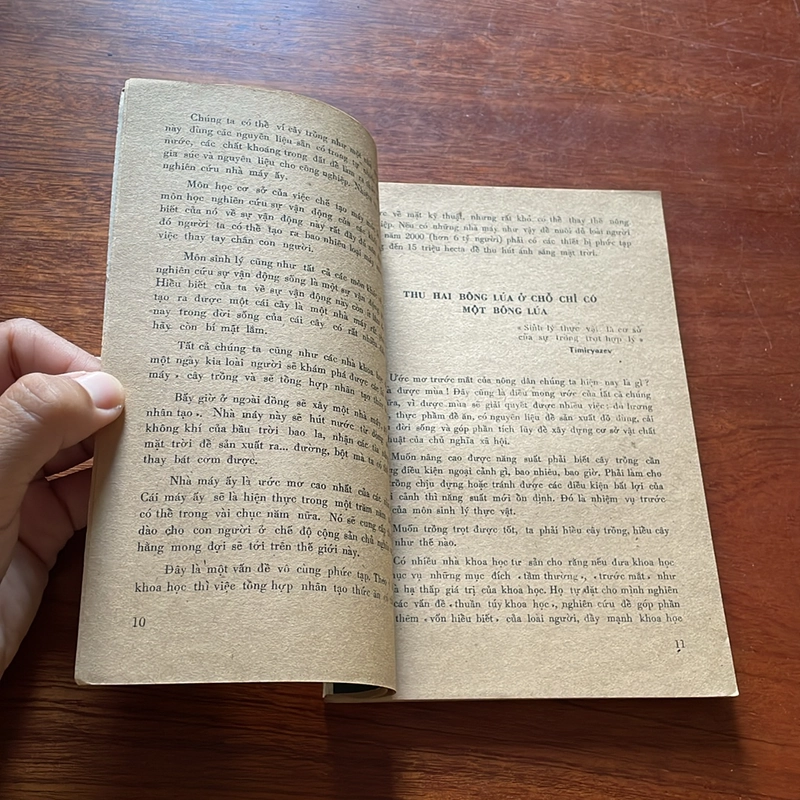 Chúng ta có thể ví cây trồng như một nhà
này dùng các nguyên liệu sẵn có trong tự
nước, các chất khoáng trong đất để làm ra
gia súc và nguyên liệu cho công nghiệp.
nghiên cứu nhà máy ấy.
Môn học cơ sở của việc chế tạo máy
môn học nghiên cứu sự vận động của các
biết của nó về sự vận động này rất đầy đủ
đó người ta có thể tạo ra bao nhiêu loại máy
việc thay tay chân con người.
Môn sinh lý cũng như tất cả các môn khoa
nghiên cứu sự vận động sống là một sự vận động
Hiểu biết của ta về sự vận động này còn ít
tạo ra được một cái cây là một nhà máy rất
nay trong đời sống của cái cây có rất nhiều
hãy còn bí mật lắm.
Tất cả chúng ta cũng như các nhà khoa học
một ngày kia loài người sẽ khám phá được các
máy » cây trồng và sẽ tổng hợp nhân tạo thức
Bấy giờ ở ngoài đồng sẽ xây một nhà máy
nhân tạo ». Nhà máy này sẽ hút nước từ
không khí của bầu trời bao la, nhận các tia
mặt trời để sản xuất ra... đường, bột mà ta có
thay bát cơm được.
Nhà máy ấy là ước mơ cao nhất của các
Cái máy ấy sẽ là hiện thực trong một trăm năm
có thể trong vài chục năm nữa. Nó sẽ cung cấp
dào cho con người ở chế độ cộng sản chủ nghĩa
hằng mong đợi sẽ tới trên thế giới này.
Đây là một vấn đề vô cùng phức tạp. Theo
khoa học thì việc tổng hợp nhân tạo thức ăn
10
về mặt kỹ thuật, nhưng rất khó có thể thay thế nông
Nếu có những nhà máy như vậy để nuôi đủ loài người
năm 2000 (hơn 6 tỉ người) phải có các thiết bị phức tạp
đến 15 triệu hecta để thu hút ánh sáng mặt trời.
THU HAI BÔNG LÚA Ở CHỖ CHỈ CÓ
MỘT BÔNG LÚA
« Sinh lý thực vật là cơ sở
của sự trồng trọt hợp lý »
Timiryazev
Ước mơ trước mắt của nông dân chúng ta hiện nay là gì ?
được mùa ! Đấy cũng là điều mong ước của tất cả chúng
vì được mùa sẽ giải quyết được nhiều việc: đủ lương
thực phẩm để ăn, có nguyên liệu để sản xuất đồ dùng, cải
đời sống và góp phần tích lũy để xây dựng cơ sở vật chất
thuật của chủ nghĩa xã hội.
Muốn nâng cao được năng suất phải biết cây trồng cần
điều kiện ngoại cảnh gì, bao nhiêu, bao giờ. Phải làm cho
trồng chịu đựng hoặc tránh được các điều kiện bất lợi của
cảnh thì năng suất mới ổn định. Đó là nhiệm vụ trước
của môn sinh lý thực vật.
Muốn trồng trọt được tốt, ta phải hiểu cây trồng, hiểu cây
như thế nào.
Có nhiều nhà khoa học tư sản cho rằng nếu đưa khoa học
phục vụ những mục đích « tầm thường », « trước mắt » như
là hạ thấp giá trị của khoa học. Họ tự đặt cho mình nghiên
các vấn đề « thuần túy khoa học », nghiên cứu để góp phần
thêm « vốn hiểu biết » của loài người, đẩy mạnh khoa học
11